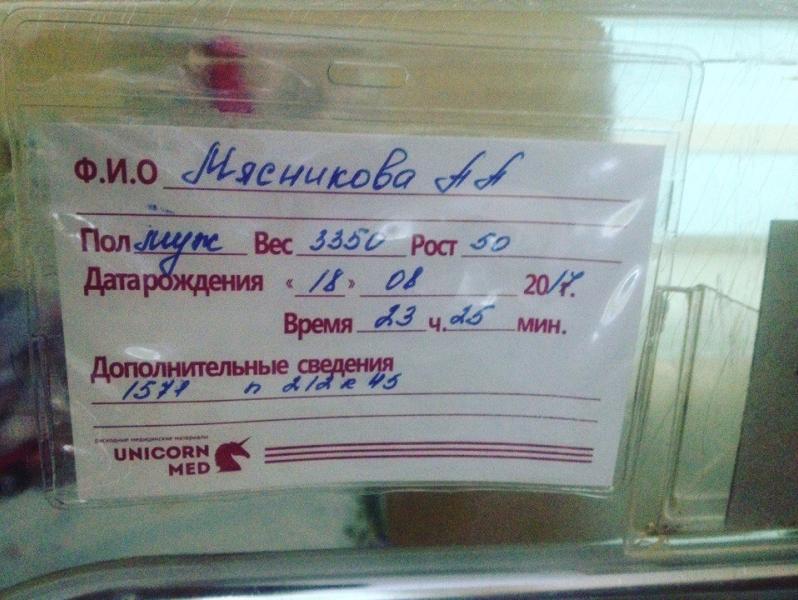 Ф.И.О Мясникова А П
Пол муж Вес 3350 Рост 50
Дата рождения «18» 08 2017.
Время 23 ч. 25 мин.
Дополнительные сведения
1577 п 212 к 45
расходные медицинские материалы
UNICORN
MED